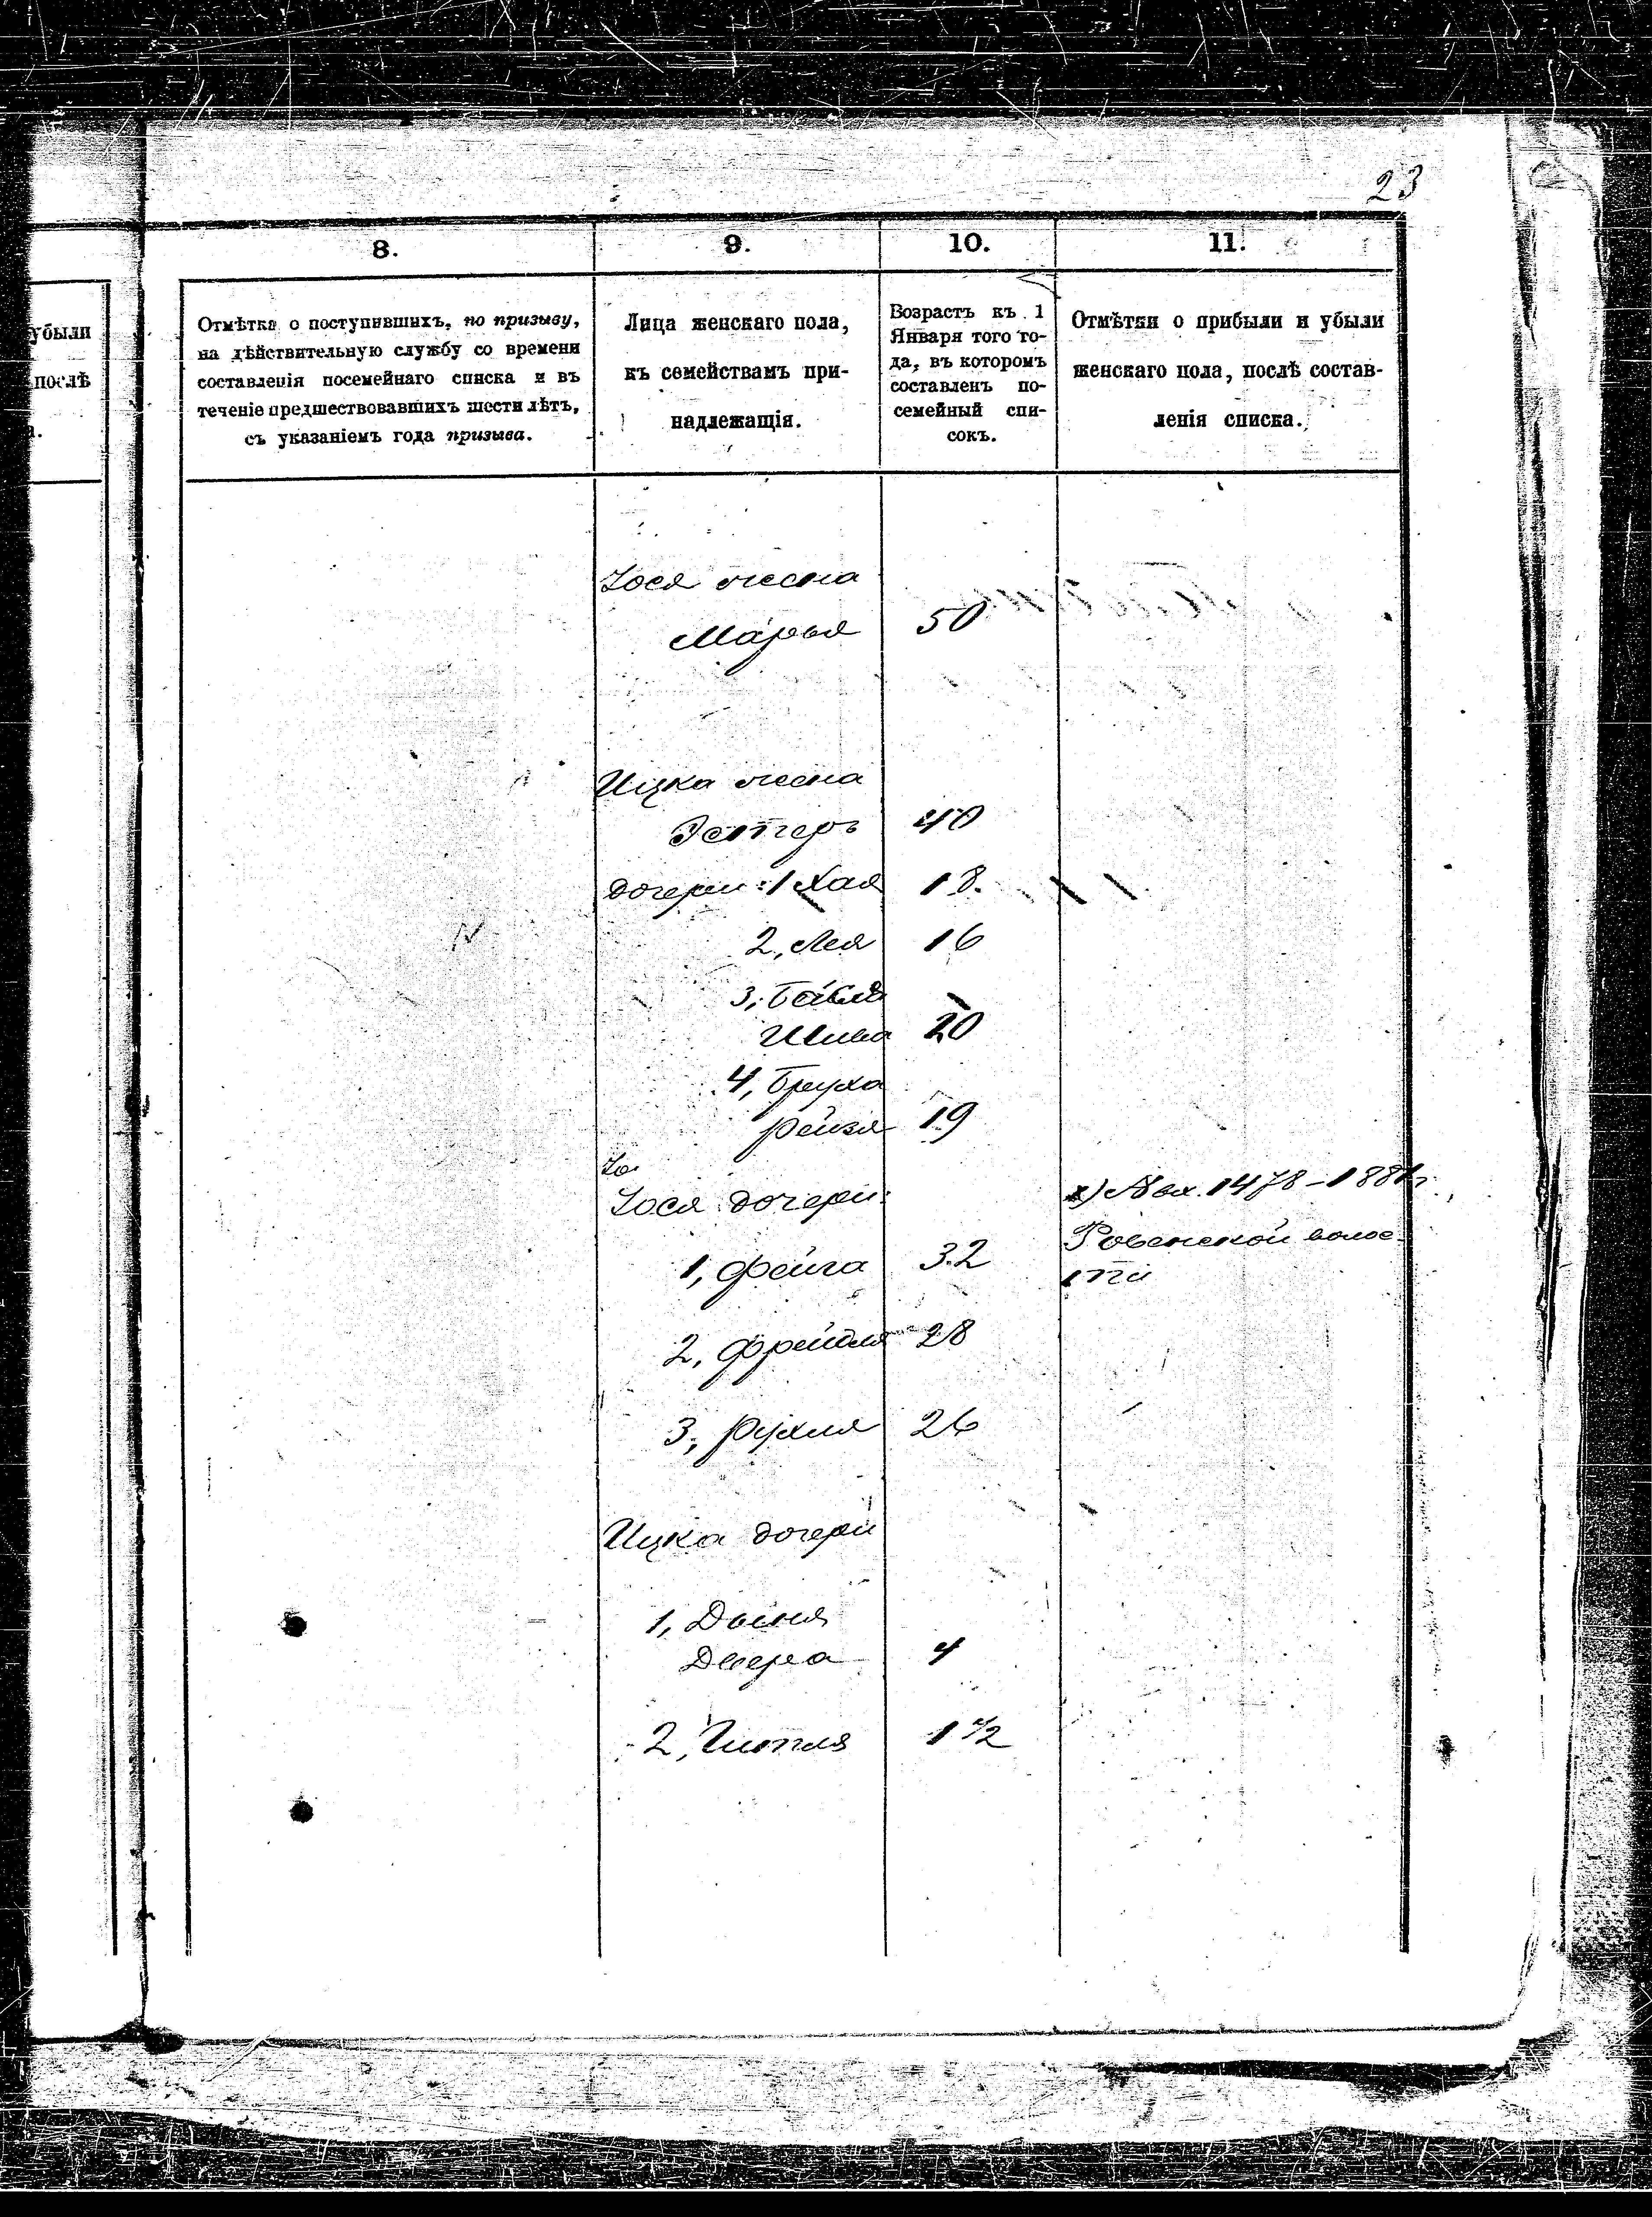 23
8.
9.
10.
11.
убыли
послѣ
Отмѣтка о поступившихъ, по призыву,
на дѣйствительную службу со времени
составленія посемейнаго списка и въ
теченіе предшествовавшихъ шести лѣтъ,
съ указаніемъ года призыва.
Лица женскаго пола,
къ семействамъ при-
надлежащія.
Возрастъ къ 1
Января того го-
да, въ которомъ
составленъ по-
семейный спи-
сокъ.
Отмѣтки о прибыли и убыли
женскаго пола, послѣ состав-
ленія списка.
Iося жена
Марья 50
Ицка жена
Эстеръ 40
дочери: 1 Хая 18.
2, Лея 16
3, Бейля
20
4, Бруха
Рейзя 19
Iо
Iося дочери:
1, Фейга 32
2, Фрейдля 28
3, Рухля 26
х) № вх. 1478 – 1881 г.
Ровенской волос-
сти
Ицка дочери
1, Двейра 4
2, Гитля 1 1/2